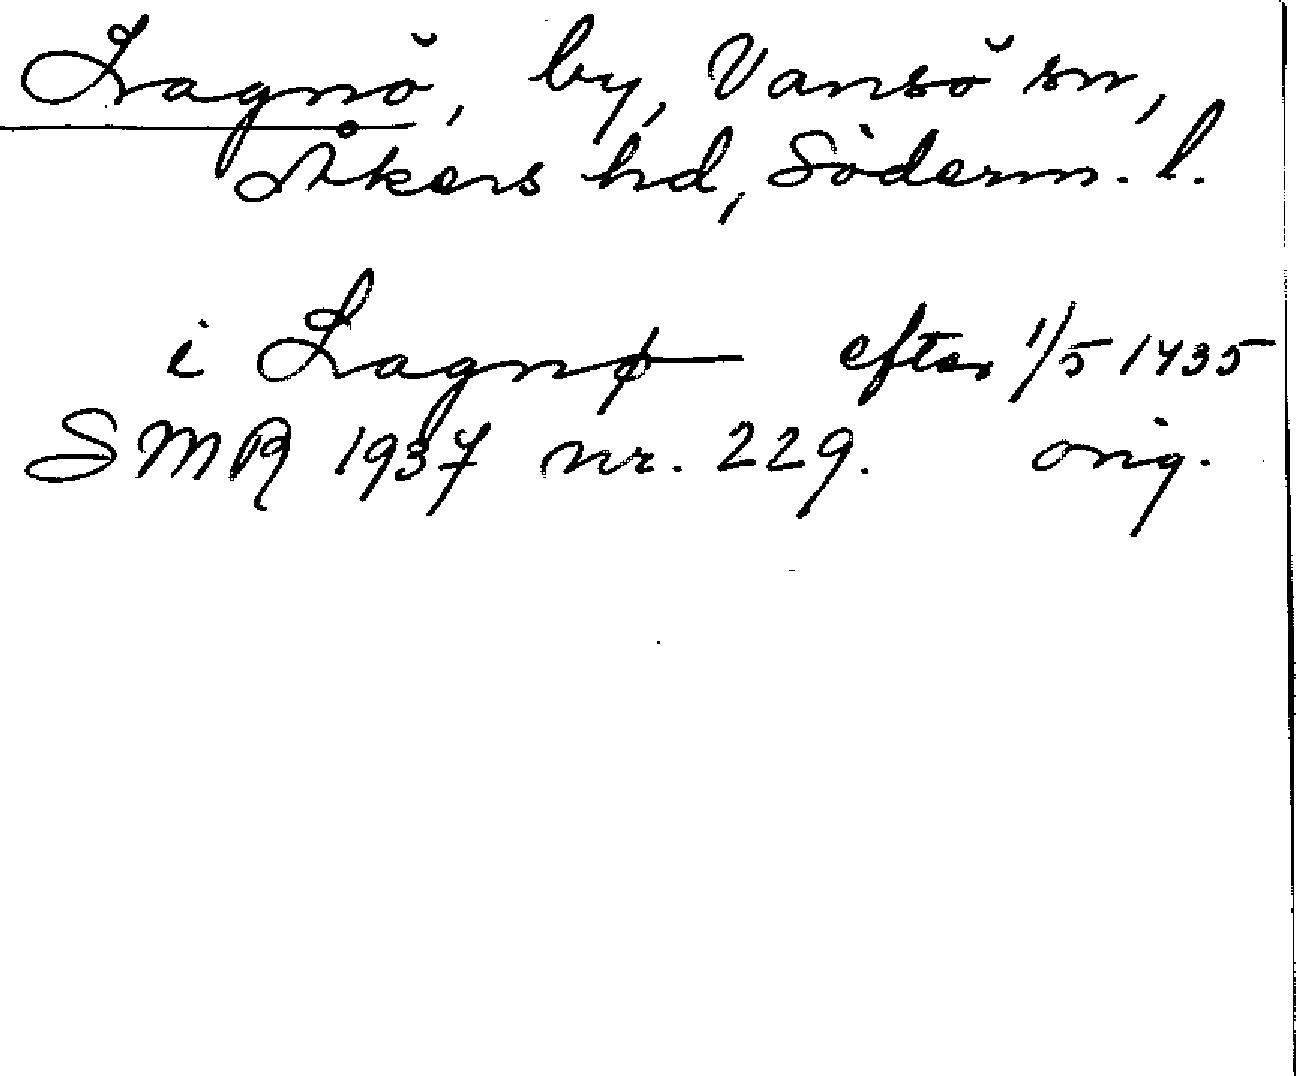 Lagnö, by, Vansö sn,
Åkers hd, Söderm. l.
i Lagnø efter 1/5 1435
SMR 1937 nr. 229. orig.